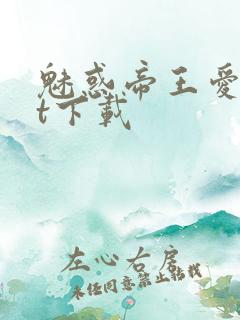 魅惑帝王爱
t下载
左心右房
未经同意禁止转载